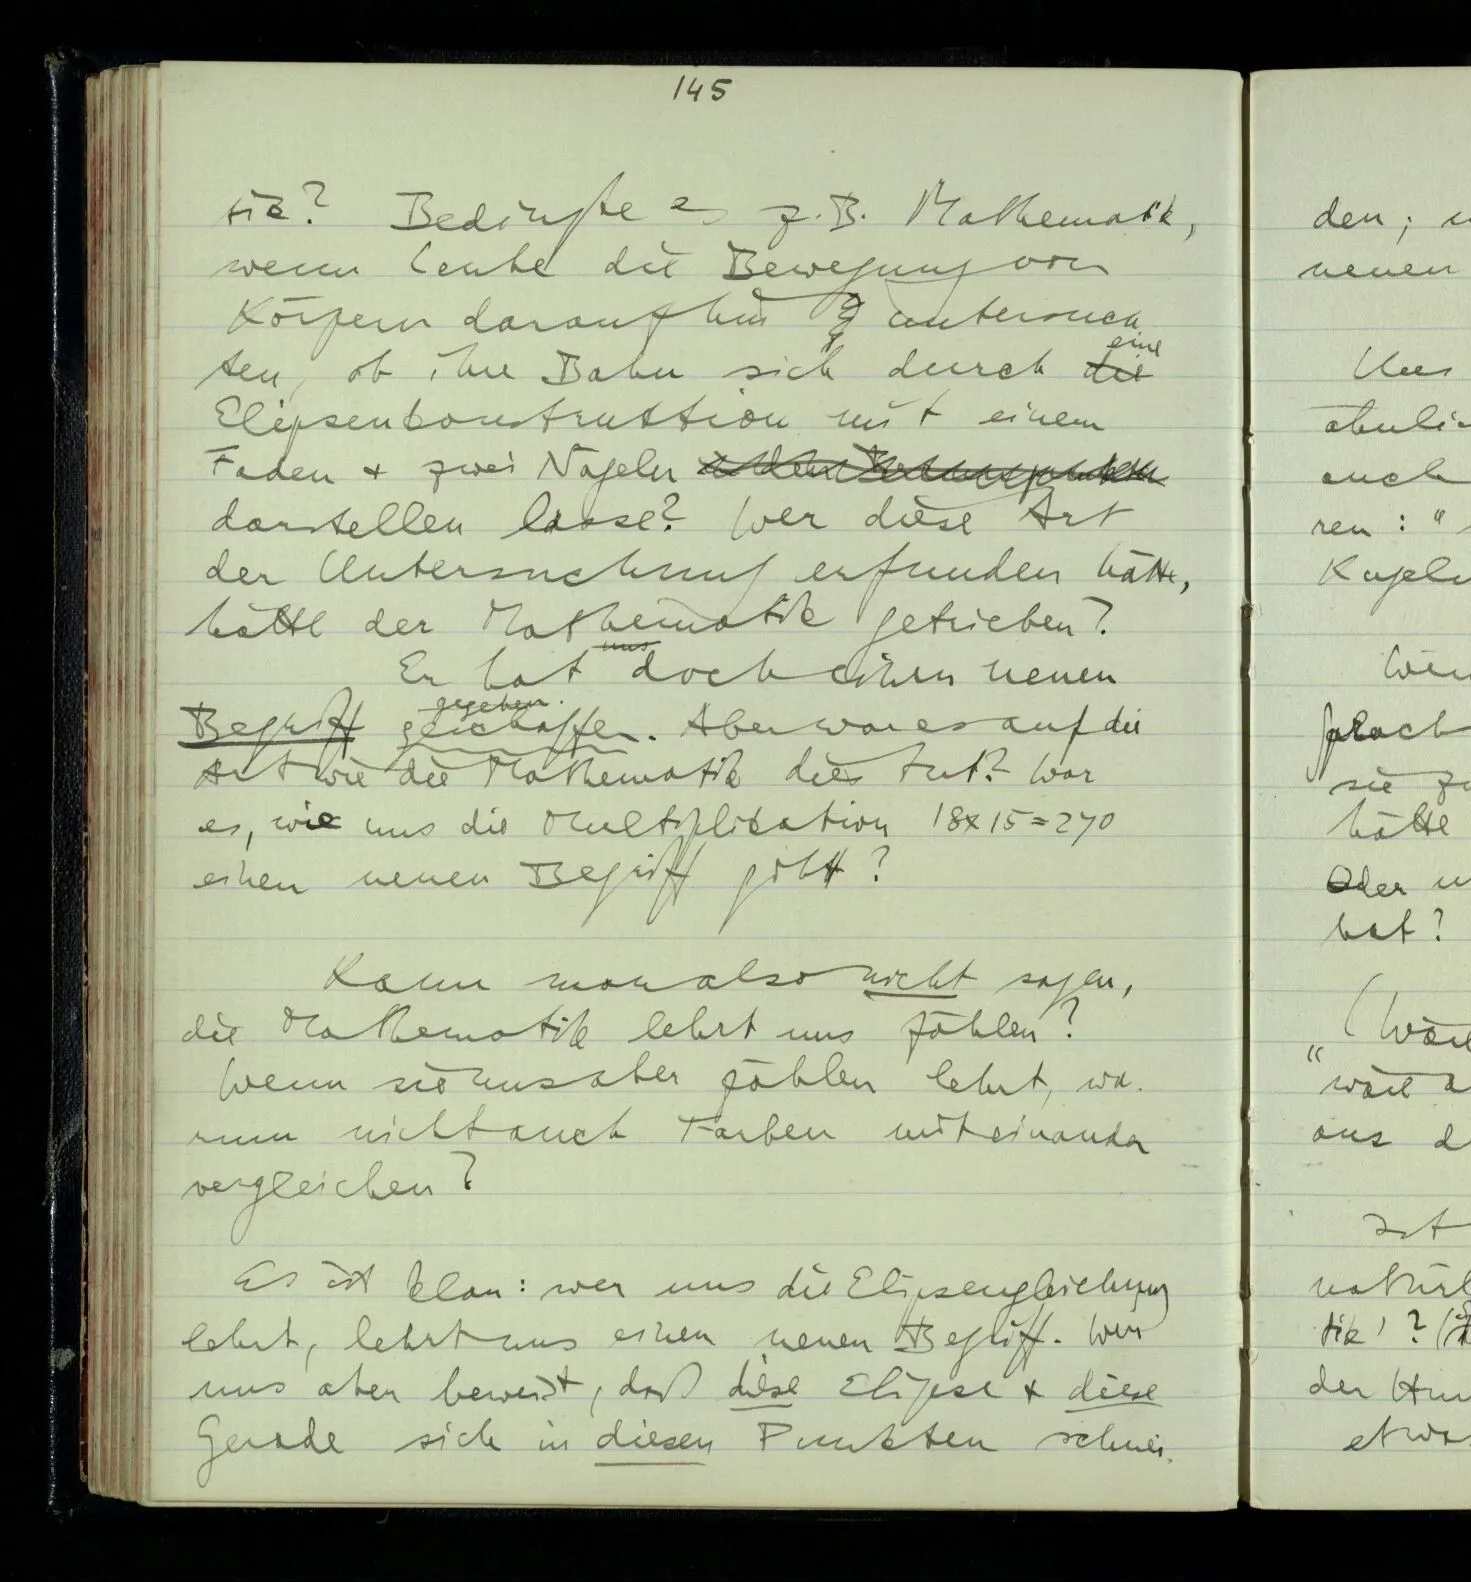 145
sik? Bedürfte es z.B. Mathematik,
wenn Leute die Bewegung von
Körpern daraufhin untersuch
ten, ob ihre Bahn sich durch die eine
Elipsenkonstruktion mit einem
Faden & zwei Nägeln
darstellen lasse? Wer diese Art
der Untersuchung erfunden hätte,
hätte der Mathematik getrieben?
Er hat uns doch einen neuen
Begriff geschaffen. gegeben.
Aber war es auf die
Art wie die Mathematik dies tut? War
es, wie uns die Multiplikation 18x15=270
einen neuen Begriff gibt?
Kann man also nicht sagen,
die Mathematik lehrt uns zählen?
Wenn sie uns aber zählen lehrt, wa-
rum nicht auch Farben miteinander
vergleichen?
Es ist klar: wer uns die Elipsengleichung
lehrt, lehrt uns einen neuen Begriff. Wer
uns aber beweist, daß diese Elipse & diese
Gerade sich in diesen Punkten schnei-
den;
neuen
ähnlic
auch
ren: "
Kugeln
sprach
sie zu
hätte
Oder
hat?
(Wäre
"wäre
aus d
Ist
natürl
tik'? (
der
etwas